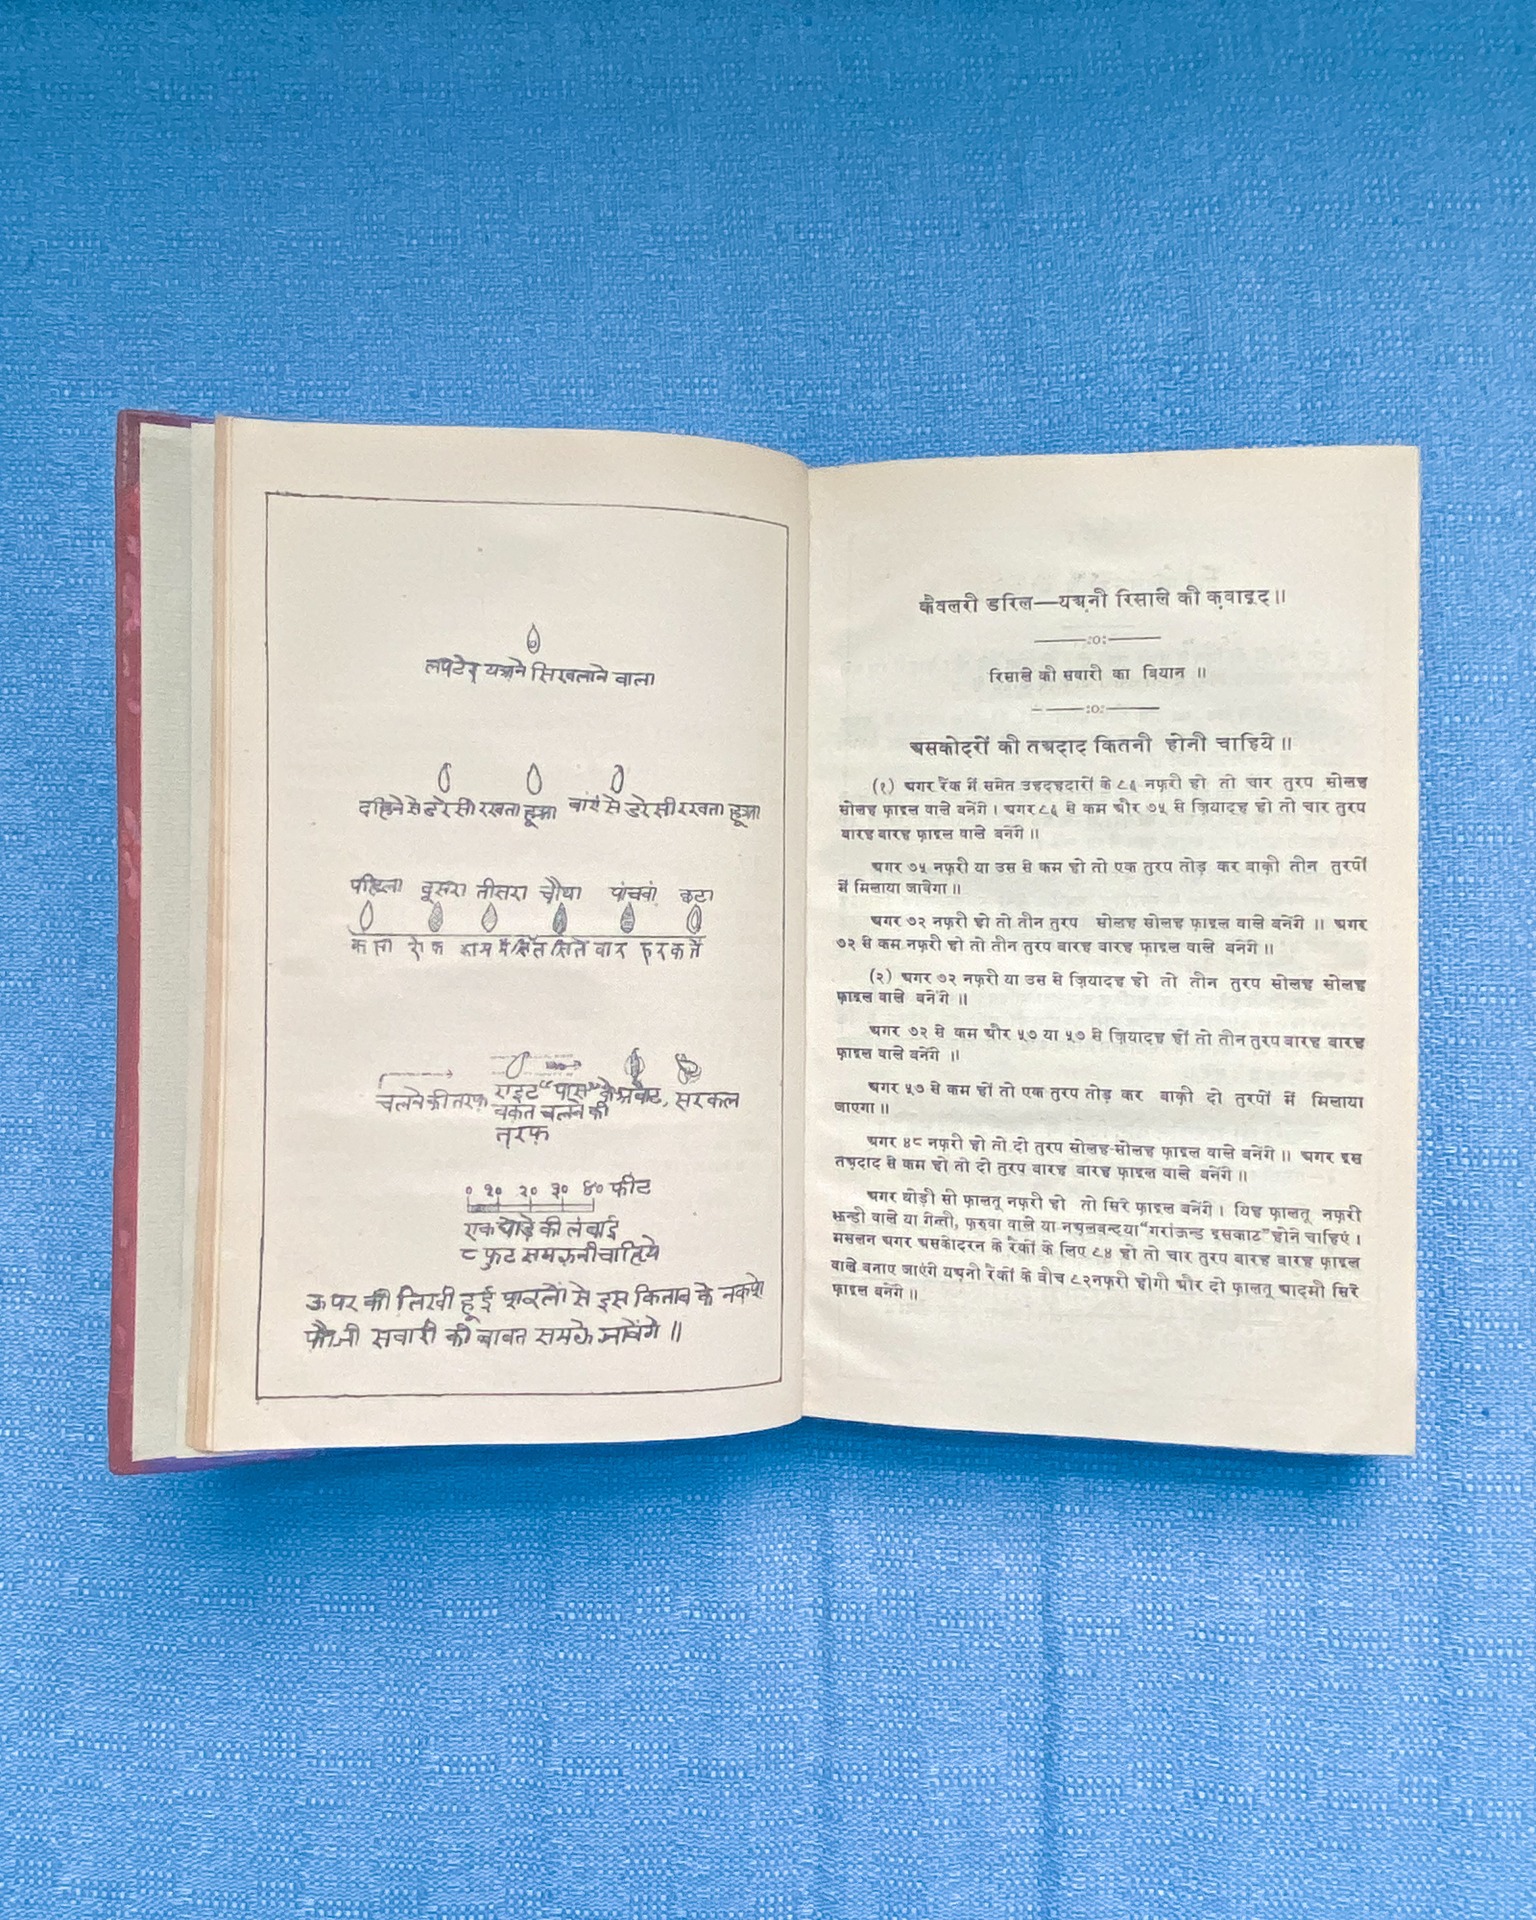 लफ्टेंट यअ़ने सिखलाने वाला
दहिने से ड्रेसी रखता हूआ बांएं से ड्रेसी रखता हूआ
पहिला दूसरा तीसरा चौथा पांचवां छटा
चलने की तरफ़ राइट "पास" के
वक़्त चलने की
तरफ़
सरकल
० १० २० ३० ४० फीट
एक घोड़े की लंबाई
८ फ़ुट समझनी चाहिये
ऊपर की लिखी हूई शकलों से इस किताब के नकशे
फौजी सवारी की बाबत समझे जावेंगे ॥
कैवलरी डरिल—यअ़नी रिसाले की क़वाइद ॥
रिसाले की सवारी का बियान ॥
असकोदरों की तअ़दाद कितनी होनी चाहिये ॥
(१) अगर रैंक में समेत उहदहदारों के ८६ नफ़री हो तो चार तुरप सोलह
सोलह फ़ाइल वाले बनेंगे । अगर ८६ से कम और ७५ से ज़ियादह हो तो चार तुरप
बारह बारह फ़ाइल वाले बनेंगे ॥
अगर ७५ नफ़री या उस से कम हो तो एक तुरप तोड़ कर बाक़ी तीन तुरपों
में मिलाया जावेगा ॥
अगर ७२ नफ़री हो तो तीन तुरप सोलह सोलह फ़ाइल वाले बनेंगे ॥ अगर
७२ से कम नफ़री हो तो तीन तुरप बारह बारह फ़ाइल वाले बनेंगे ॥
(२) अगर ७२ नफ़री या उस से ज़ियादह हो तो तीन तुरप सोलह सोलह
फ़ाइल वाले बनेंगे ॥
अगर ७२ से कम और ५७ या ५७ से ज़ियादह हों तो तीन तुरप बारह बारह
फ़ाइल वाले बनेंगे ॥
अगर ५७ से कम हों तो एक तुरप तोड़ कर बाक़ी दो तुरपों में मिलाया
जाएगा ॥
अगर ४८ नफ़री हो तो दो तुरप सोलह-सोलह फ़ाइल वाले बनेंगे ॥ अगर इस
तअ़दाद से कम हो तो दो तुरप बारह बारह फ़ाइल वाले बनेंगे ॥
अगर थोड़ी सी फ़ालतू नफ़री हो तो सिरे फ़ाइल बनेंगे । यिह फ़ालतू नफ़री
झन्डी वाले या गेन्ती, फ़रुवा वाले या नअ़लबन्द या "गरांऊन्ड इसकाट" होने चाहिएं ।
मसलन अगर असकोदरन के रैंकों के लिए ८४ हो तो चार तुरप बारह बारह फ़ाइल
वाले बनाए जाएंगे यअ़नी रैंकों के बीच ८२ नफ़री होगी और दो फ़ालतू आदमी सिरे
फ़ाइल बनेंगे ॥